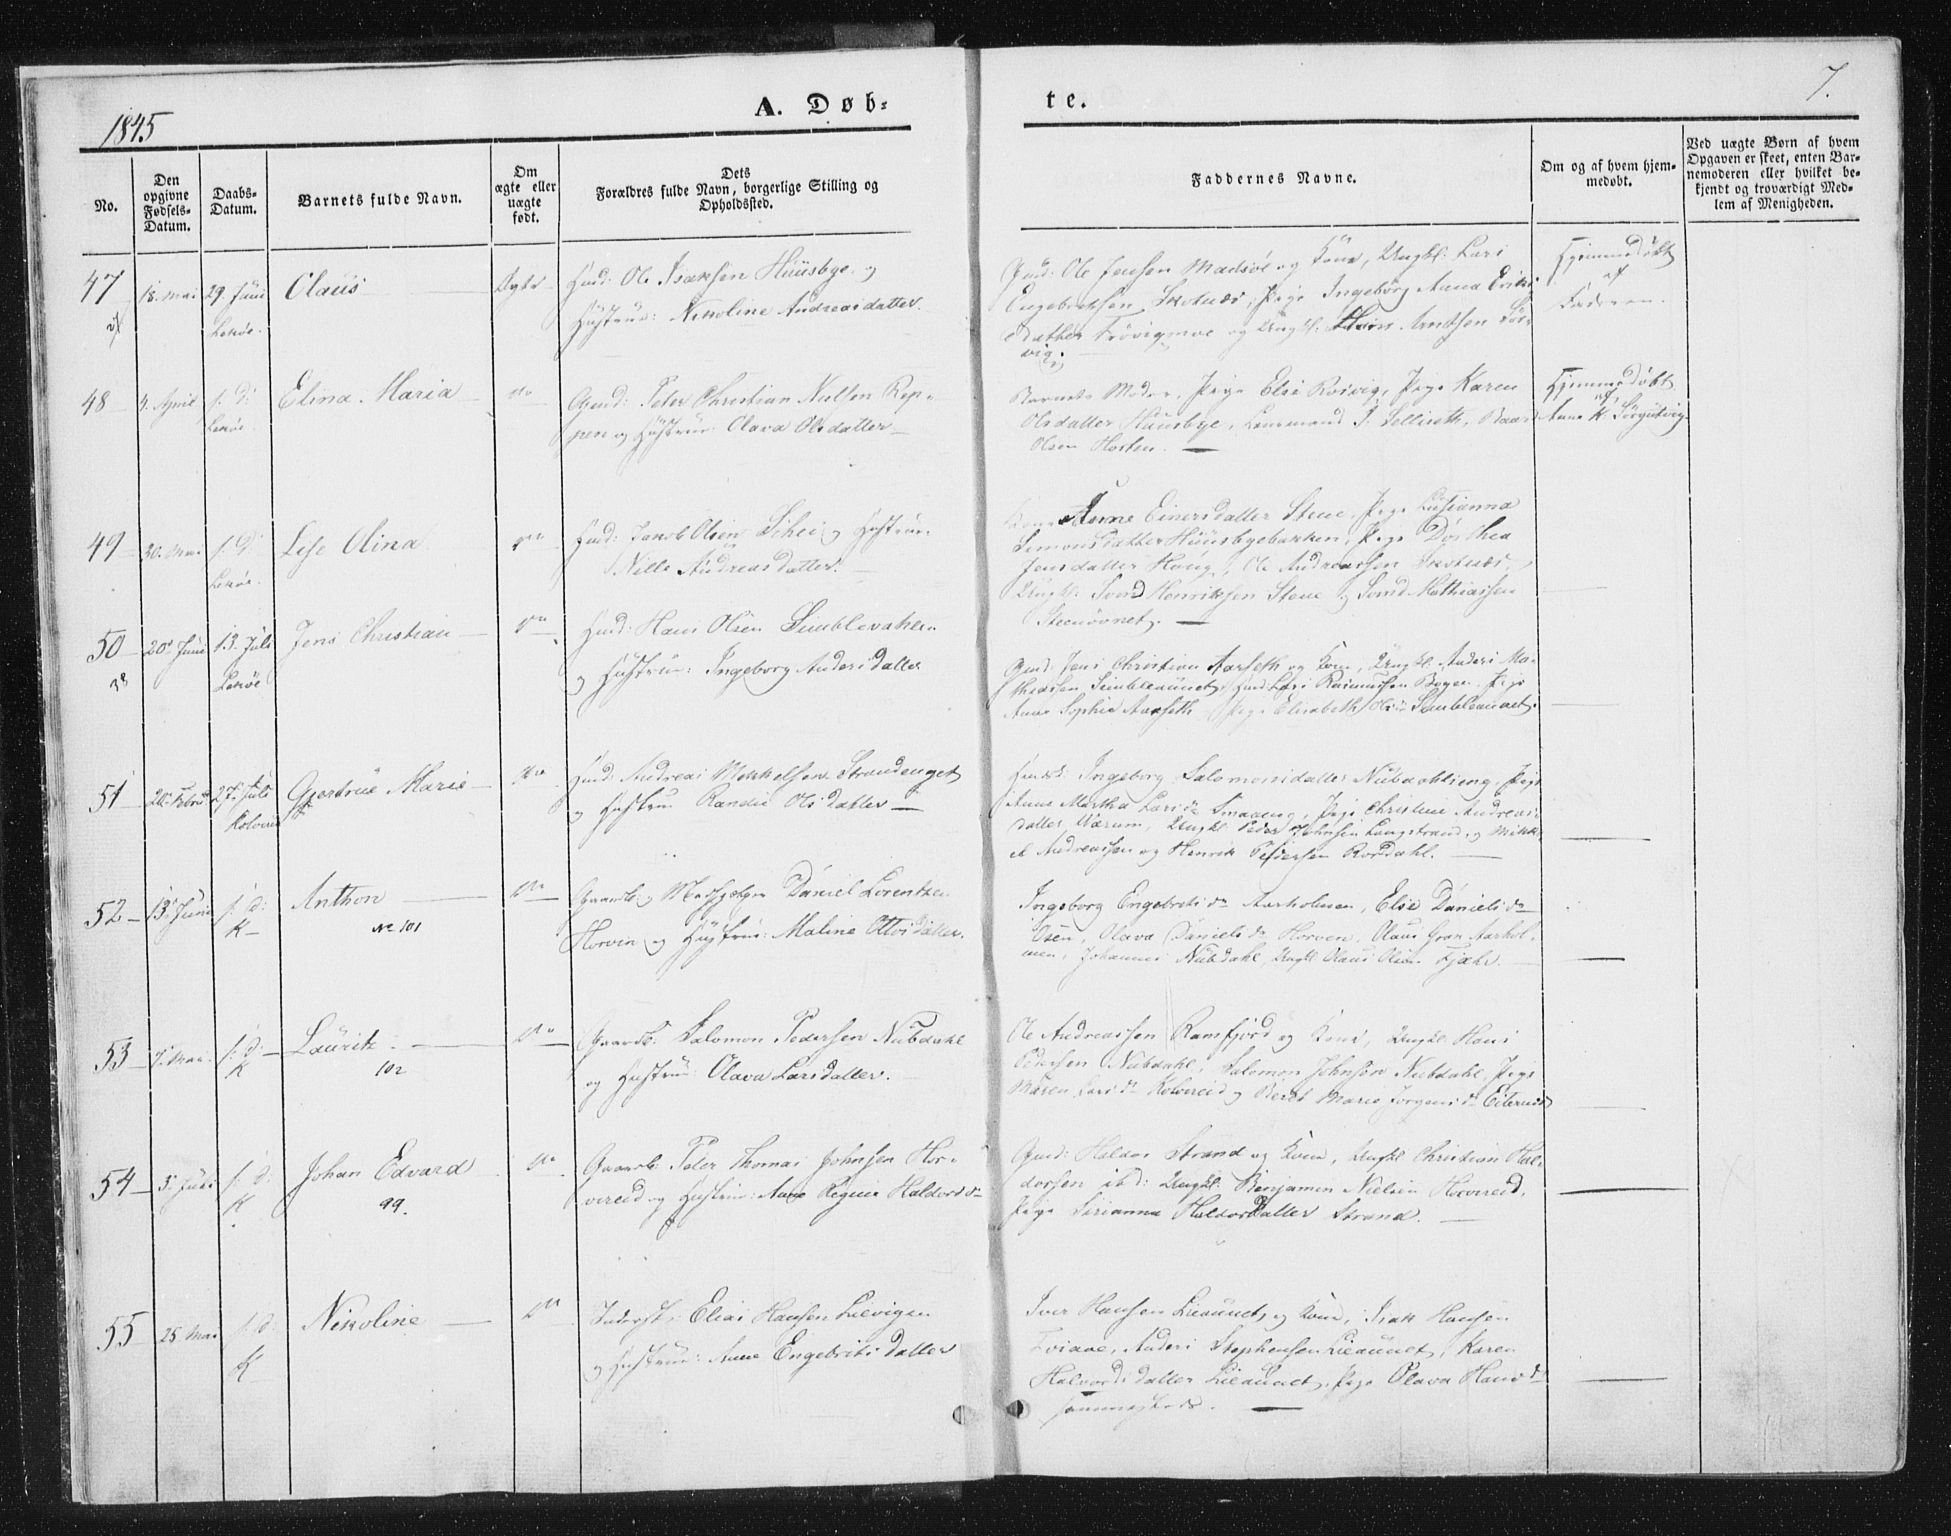 1845
A. Døb-
te.
7.
No.
Den opgivne Fødsels-Datum.
Daabs-Datum.
Barnets fulde Navn.
Om ægte eller uægte født.
Dets Forældres fulde Navn, borgerlige Stilling og Opholdssted.
Faddernes Navne.
Om og af hvem hjem-medøbt.
Ved uægte Børn af hvem Opgaven er skeet, enten Bar-nemoderen eller hvilket be-kjendt og troværdigt Med-lem af Menigheden.
47 18. Mai 29. Juni Claus Ægte Huusm: Ole Isaksen Huusbye og
Lekøe. Hustrue: Nikoline Andreasdatter.
Gmd: Ole Jensen Madsøe og Kone, Ungk: Lars
Engebretsen Skotnes, Pige Ingeborg Anna Eriks
datter Frøvigmoe og Ungk: Arntsen Sør-
vig.
Hjemmedøbt
af
Faderen.
48 4. April s: D: Elina Maria do Gmd: Peter Christian Nielsen Rep-
Lekøe. pen og Hustrue: Olava Olsdatter
Barnets Moder, Pige Else Rosvig, Pige Karen
Olsdatter Huusbye, Lensmand J. Sellieth, Baard
Olsen Horten.
Hjemmedøbt
af
Anne K. Sørgutvig
49 30. Mai s: D: Lise Olina do Huusm: Jakob Olsen Lihei og Hustrue:
Lekøe. Nille Andreasdatter.
Kone Anne Einersdatter Steue, Pige Lusianna
Simonsdatter Huusbyebakken, Pige Dorthea
Jensdatter Haug, Ole Andreassen Skotnes,
Ungk: Svend Henriksen Steue og Svend Mathiassen
Steenøvnet.
50 20. Juni 13. Juli Jens Christian do Huusm: Hans Olsen
Lekøe og Hustrue: Ingeborg Andersdatter
Gmd: Jens Christian Aarseth og Kone, Ungk: Anders Ma-
thiassen Simbleaunet, Huusm: Lars Rasmussen Bogen, Pige
Anne Sophie Aarseth, Pige Elisabeth Olsdr Simbleaunet.
51 20. Febru 27. Juli Gjertrue Marie do Huusm: Andreas Mikkelsen Strandenget
Kolvereid og Hustrue Randie Olsdatter
Ingeborg Salomonsdatter Nubdahlseng, Pige
Anne Martha Larsdr Smaaeng, Pige Christine Andreas-
datter Værum, Ungk: Peder Johnsen Langstrand, og Mikk-
el Andreassen og Henrik Pedersen Rørdahl.
52 13. Juni s: D: Anthon do Gaardb: og Daniel Lorentzen
K No 101 Horvin og Hustrue: Maline Ottosdatter.
Ingeborg Engebretsdr Aarholmen, Else Danielsdr
Osen, Olava Danielsdr Horven, Olaus Gran Aarhol-
men, Johannes Nubdahl, Ungk: Olaus Olsen Fjæhr.
53 7. Mai s: D: Lauritz do Gaardb: Salomon Pedersen Nubdahl
K 102 og Hustrue: Olava Larsdatter.
Ole Andreassen Ramfjord og Kone, Ungk: Hans
Pedersen Nubdahl, Salomon Johnsen Nubdahl, Pige
Maren Larsdr Kolvereid og Beret Marie Jørgensdr Eiternes
54 3. Juli s: D: Johan Edvard do Gaardb: Peter Thomas Johnsen Hor-
K 99. vereid og Hustrue: Anne Regine Haldorsdr
Gmd: Haldor Strand og Kone, Ungk: Christian Hal-
dorsen ibd: Ungk: Benjamin Nielsen Horvereid,
Pige Sirianna Haldorsdatter Strand.
55 25. Mai s: D: Nikoline do Inderst: Elias Hansen Lievigen
K og Hustrue: Anne Engebritsdatter
Iver Hansen Lieaunet og Kone, Isak Hansen
Foiaae, Anders Stephensen Lieaunet, Karen
Halvordsdatter Lieaunet, Pige Olava Hansdr
sammesteds.